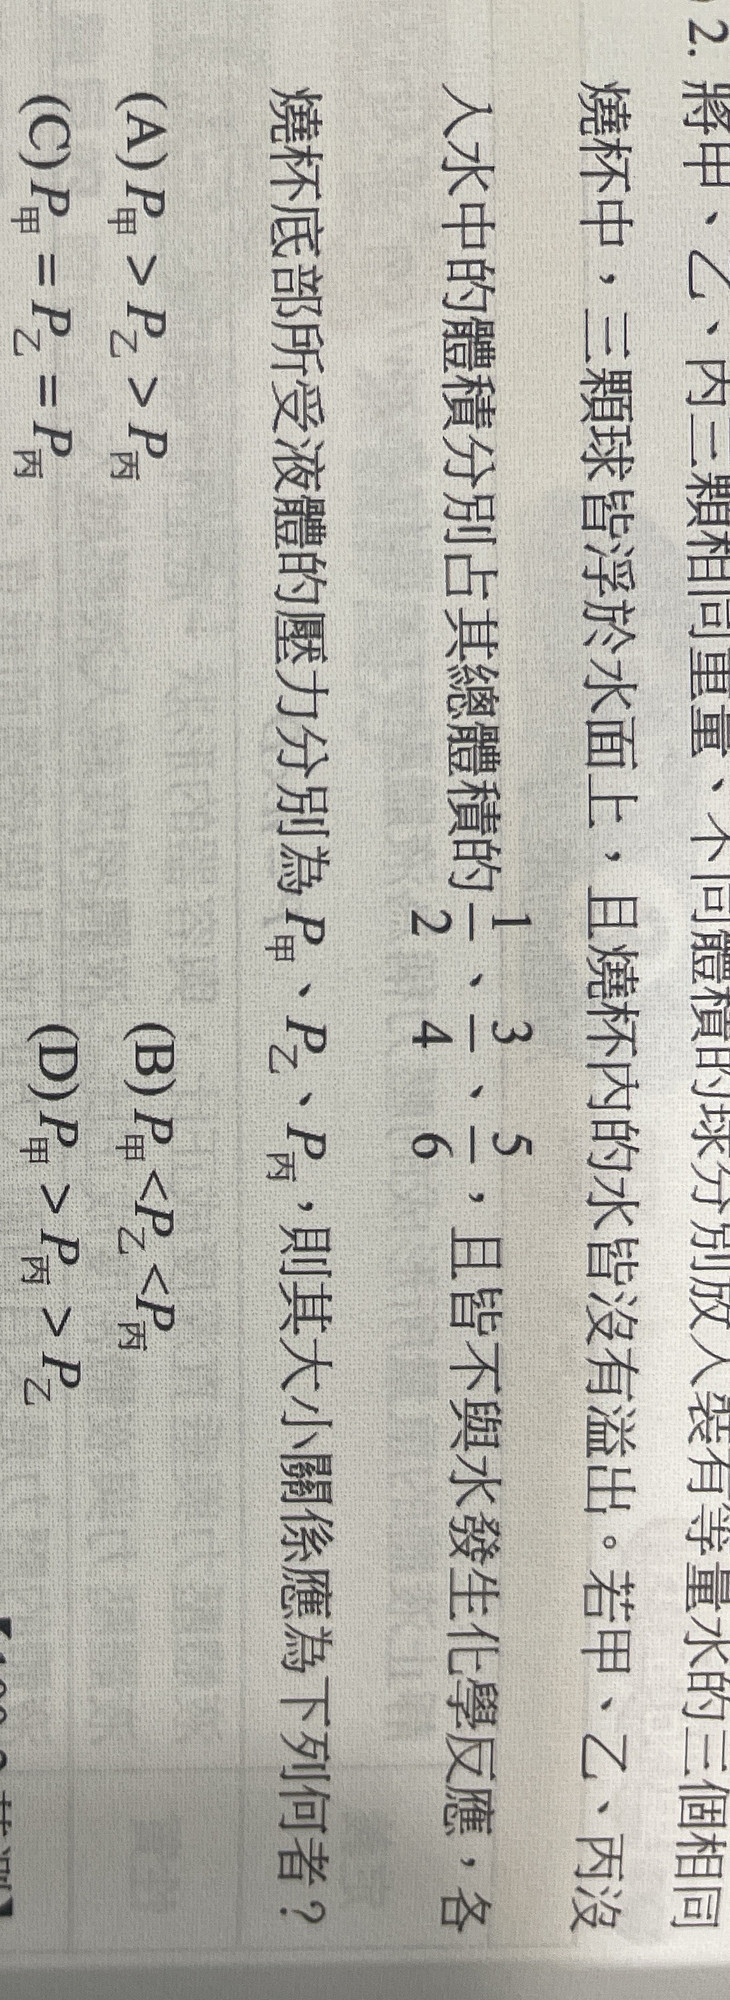 2. 將甲、乙、丙三顆相同重量、不同體積的球分別放入裝有等量水的三個相同
燒杯中，三顆球皆浮於水面上，且燒杯內的水皆沒有溢出。若甲、乙、丙沒
入水中的體積分別占其總體積的 1/2、3/4、5/6，且皆不與水發生化學反應，各
燒杯底部所受液體的壓力分別為 P甲、P乙、P丙，則其大小關係應為下列何者？
(A) P甲 > P乙 > P丙 (B) P甲 < P乙 < P丙
(C) P甲 = P乙 = P丙 (D) P甲 > P丙 > P乙